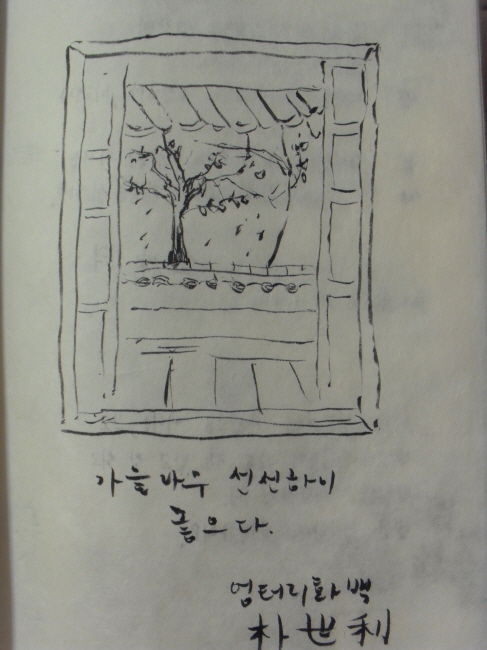 가늘바우 선선하이
좋으다.
엉터리화백
朴世利